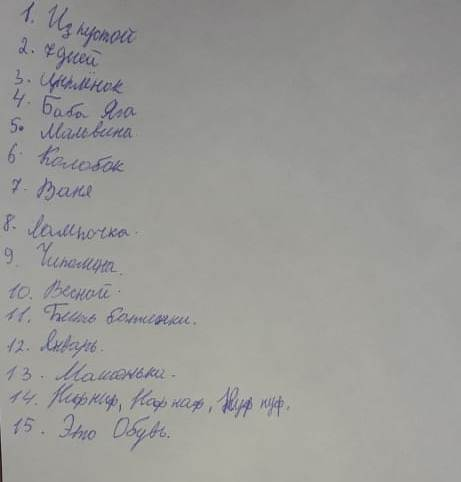 1. Из пустой
2. 7 дней
3. Цыплёнок
4. Баба Яга
5. Мальвина
6. Колобок
7. Ваня
8. Лампочка.
9. Чиполина.
10. Весной.
11. Бить
12. Январь.
13. Мамонька.
14. Нифниф, Нафнаф, Нуф нуф.
15. Это Обувь.